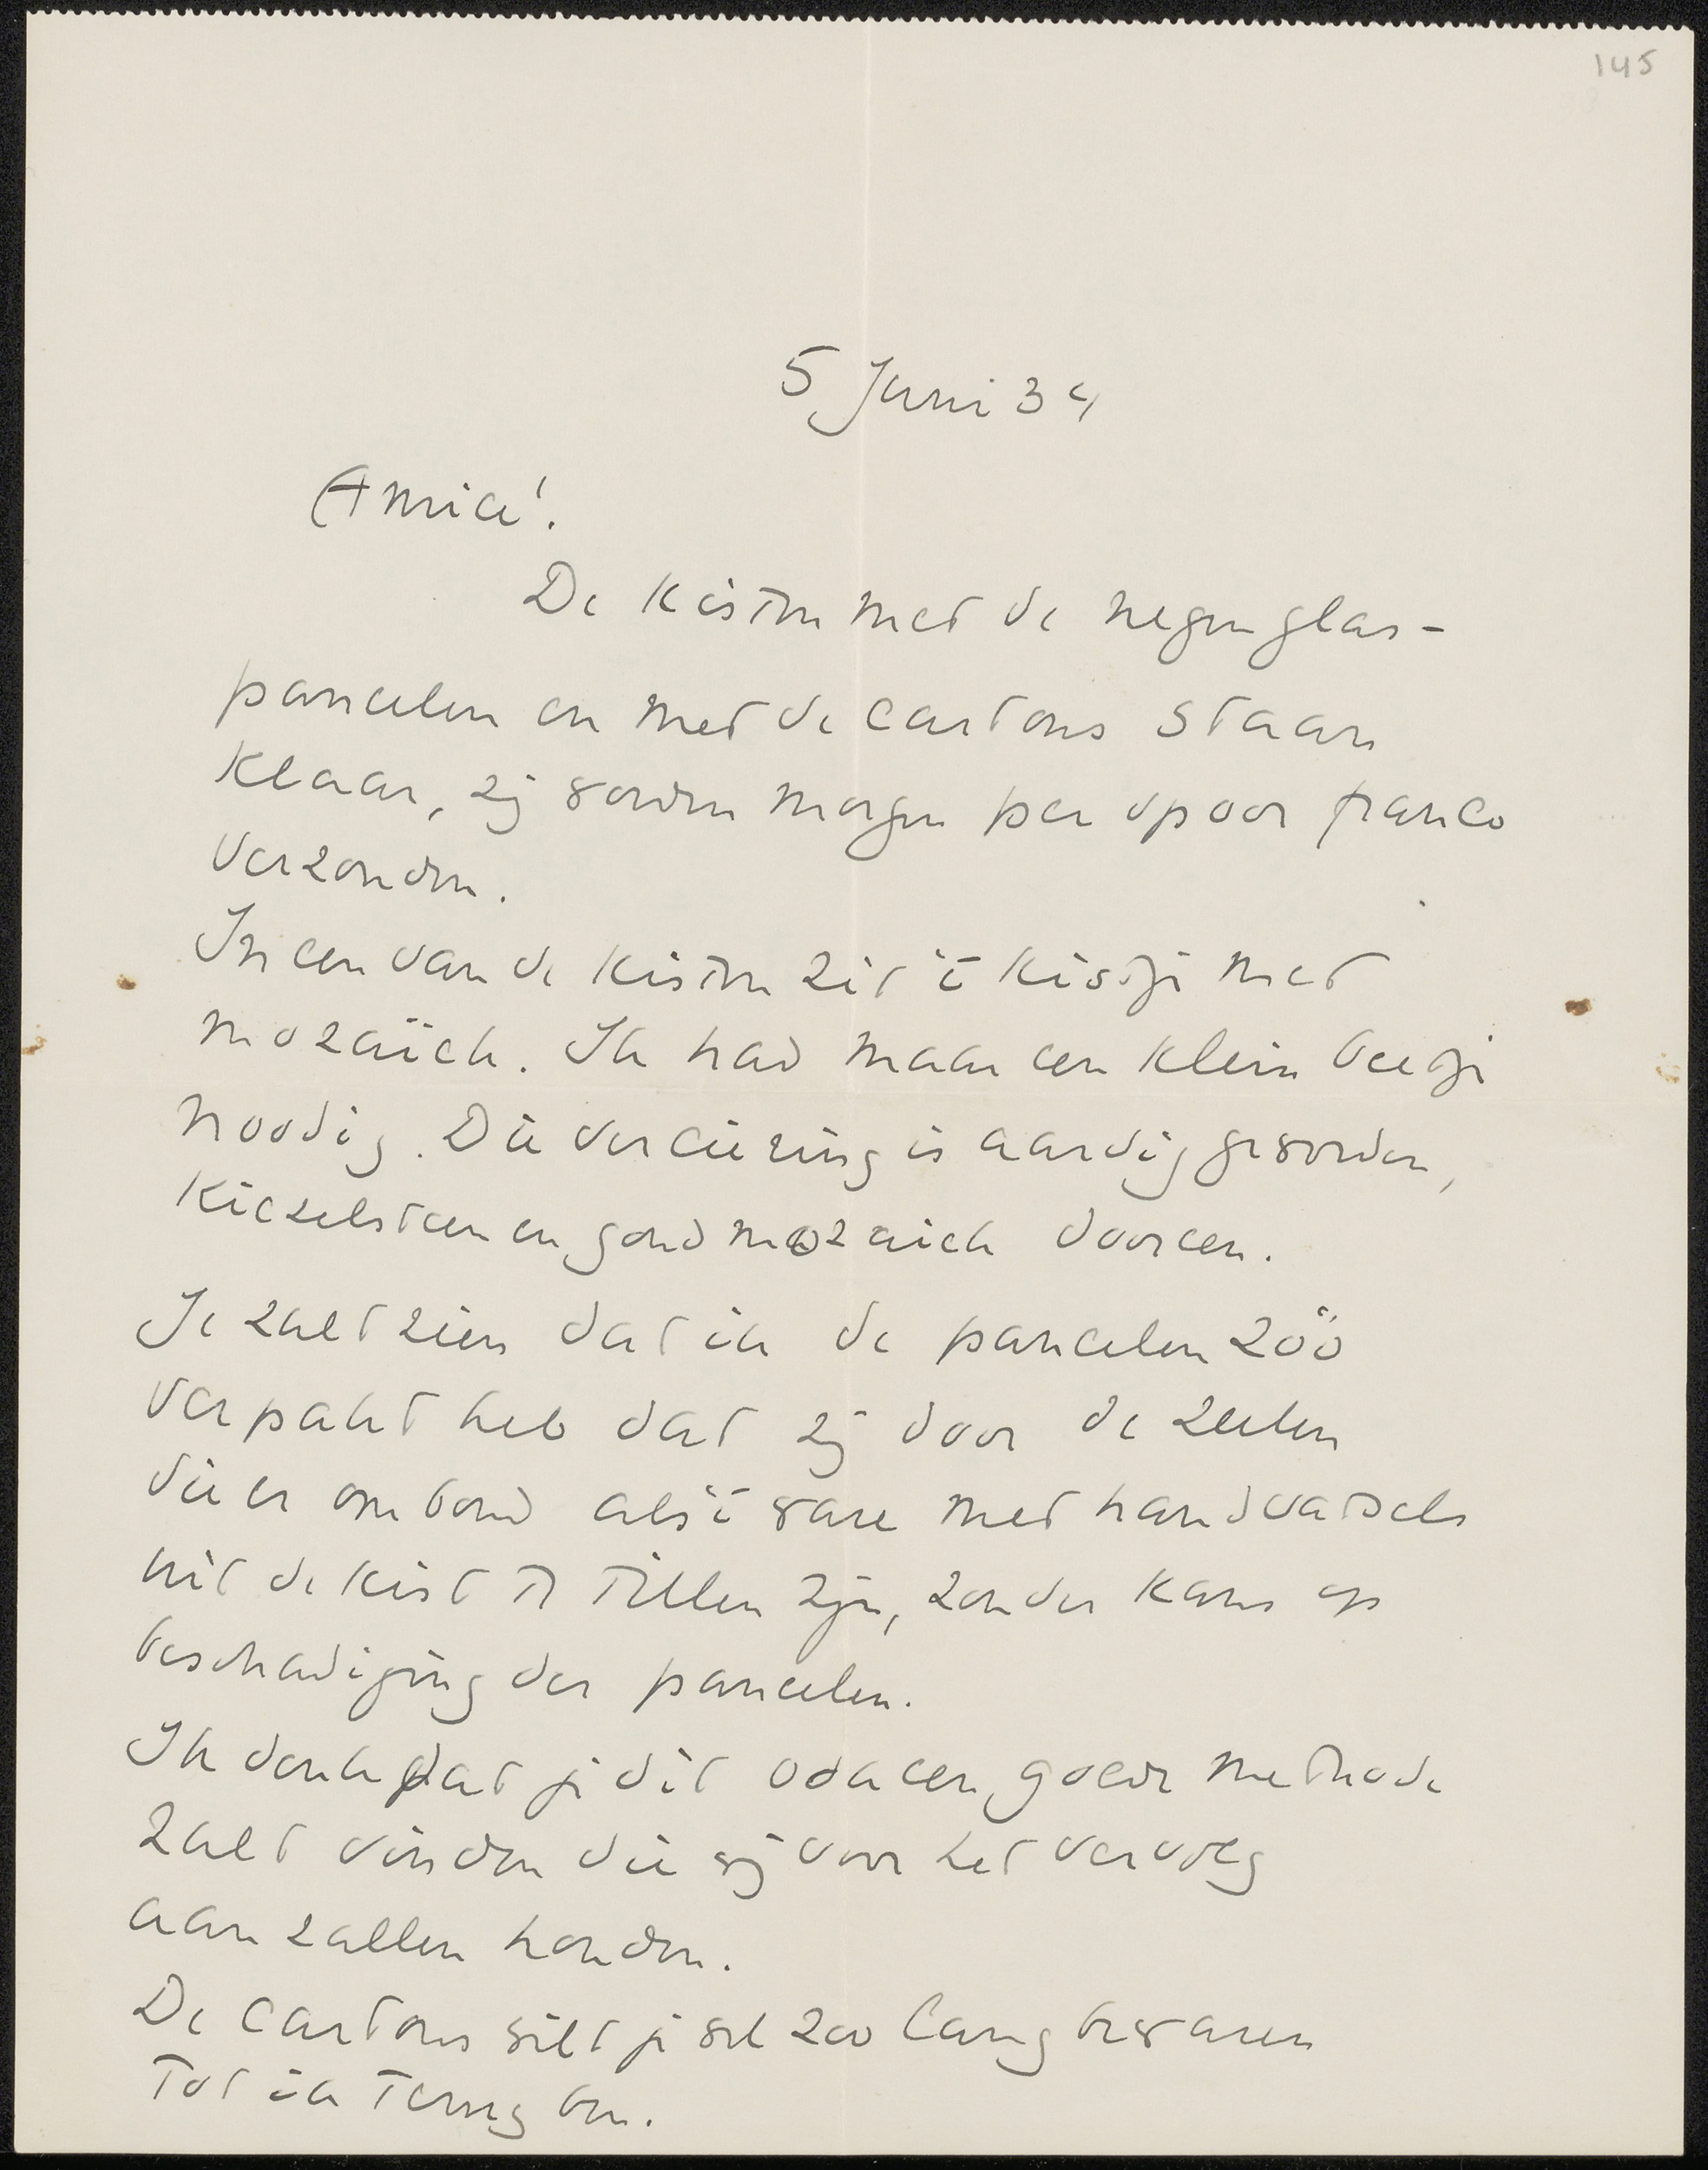 145
5 Juni 34
Amice!
De kisten met de negen glas-
paneelen en met de cartons staan
klaar, zij worden morgen per spoor franco
verzonden.
In een van de kisten zit 't kistje met
mozaïek. Ik had maar een klein beetje
noodig. Die verciering is aardig geworden,
kiezelsteen en goud mozaiek dooreen.
Je zalt zien dat ik de paneelen zóó
verpakt heb dat zij door de zeelen
die er om bond als 't ware met handvatsels
uit de kist te tillen zijn, zonder kans op
beschadiging der paneelen.
Ik denk dat je dit ook een goede methode
zalt vinden die wij voor het vervolg
aan zallen houden.
De cartons wilt je wel zoo lang bewaren
tot ik terug ben.